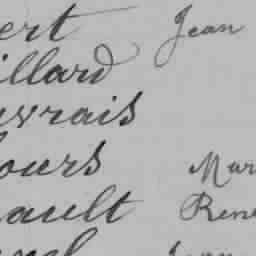 ert Jean
illard
uvrais
ours Mar
ault Rene